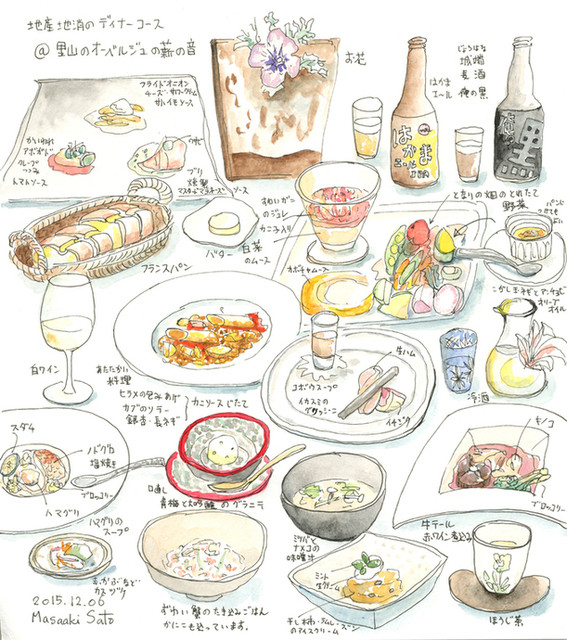 地産地消のディナーコース
@ 里山のオーベルジュの薪の音
フライドオニオン
チーズ・サワークリーム
サトイモソース
かいわれ
アボガド
クレープ
つつみ
トマトソース
ブリ
燻製
マスタードマヨネーズソース
お花
はかま
エール
はかま
エール
じょうはな
城端
麦酒
俺の黒
バター
フランスパン
ずわいガニ
のジュレ
カニ子入り
白菜
のムース
カボチャムース
となりの畑のとれたて
野菜
オリーブ
オイル
白ワイン
あたたかい
料理
ヒラメの包みあげ
カブのソテー
銀杏・長ネギ
カニソースじたて
ゴボウスープ
生ハム
イカスミの
グリッシーニ
イチジク
冷酒
スダチ
ノドグロ
塩焼き
ブロッコリー
ハマグリ
ハマグリの
スープ
口直し
青梅と大吟醸のグラニテ
ミツバと
ナメコの
味噌汁
キノコ
ブロッコリー
牛テール
赤ワイン煮込み
かぶなど
カスヅケ
ずわい蟹のたき込みごはん
かにこも入っています。
ミント
生クリーム
干し柿・ラムレーズン
のアイスクリーム
ほうじ茶
2015.12.06
Masaaki Sato